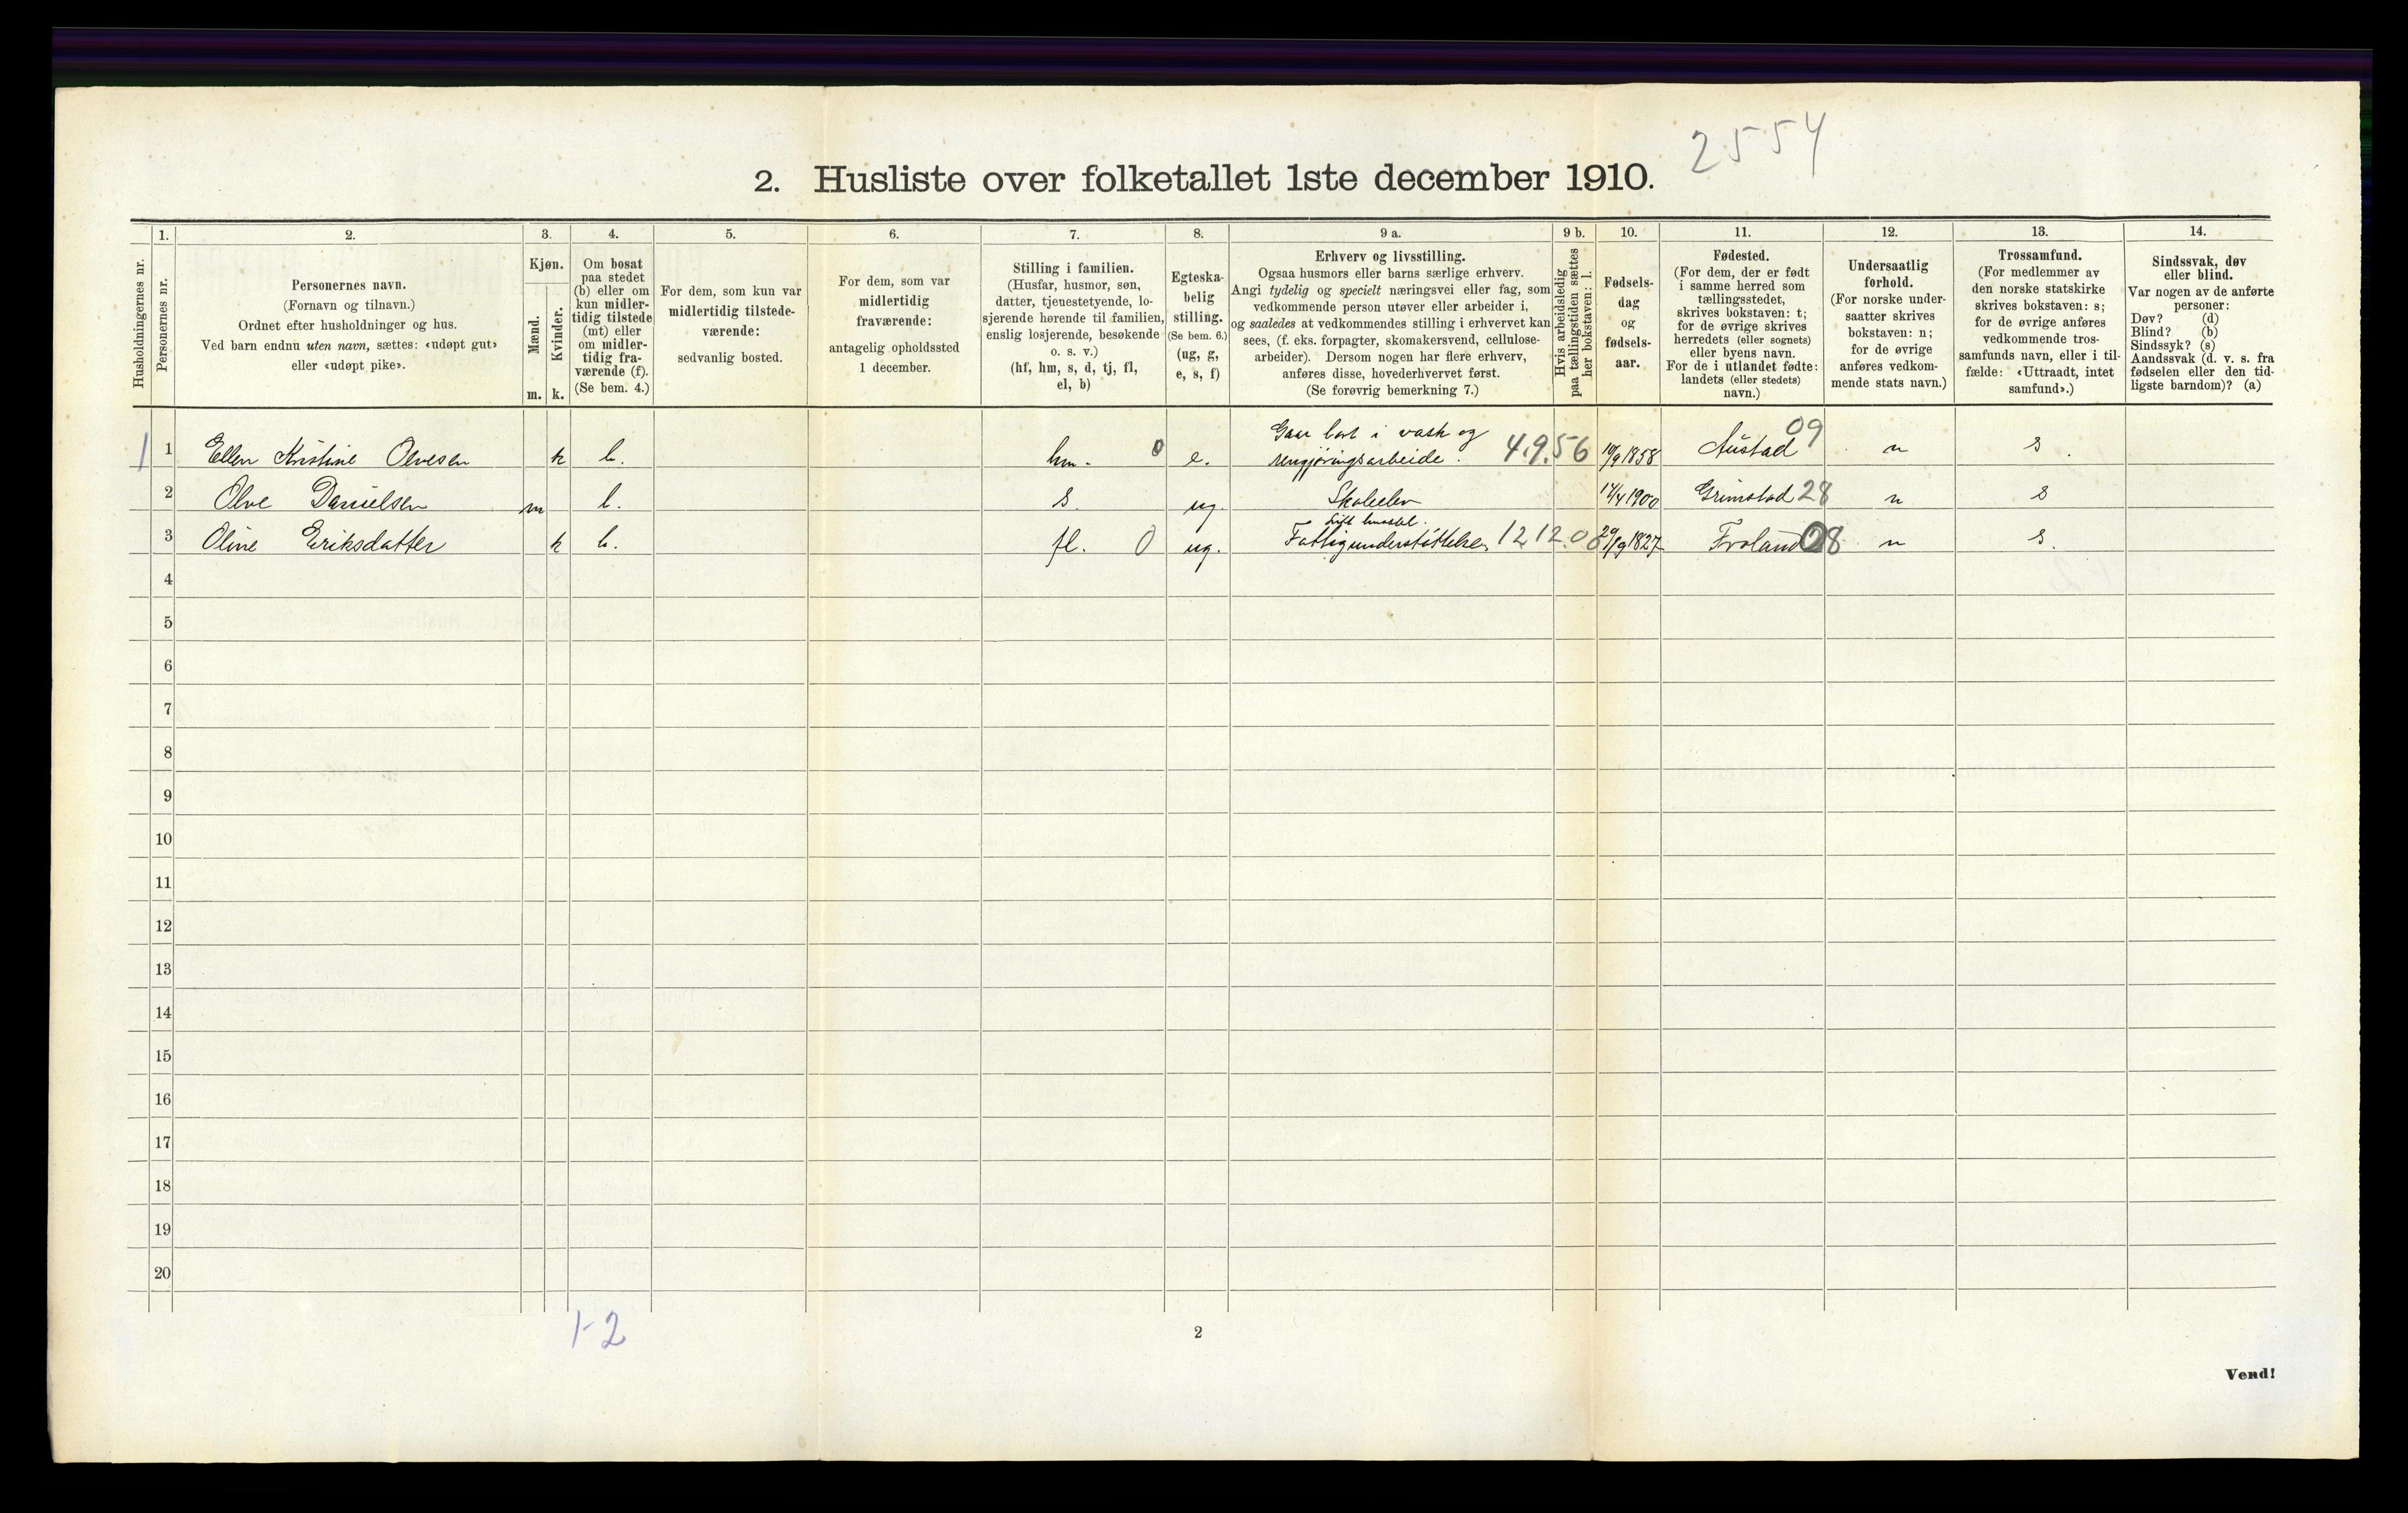 2554
2. Husliste over folketallet 1ste december 1910.
1. 2. 3. 4. 5. 6. 7. 8. 9 a. 9 b. 10. 11. 12. 13. 14.
Husholdningernes nr.
Personernes nr.
Personernes navn.
(Fornavn og tilnavn.)
Ordnet efter husholdninger og hus.
Ved barn endnu uten navn, sættes: «udøpt gut»
eller «udøpt pike».
Kjøn.
Mænd.
Kvinder.
m. k.
Om bosat
paa stedet
(b) eller om
kun midler-
tidig tilstede
(mt) eller
om midler-
tidig fra-
værende (f).
(Se bem. 4.)
For dem, som kun var
midlertidig tilstede-
værende:
sedvanlig bosted.
For dem, som var
midlertidig
fraværende:
antagelig opholdssted
1 december.
Stilling i familien.
(Husfar, husmor, søn,
datter, tjenestetyende, lo-
sjerende hørende til familien,
enslig losjerende, besøkende
o. s. v.)
(hf, hm, s, d, tj, fl,
el, b)
Egteska-
belig
stilling.
(Se bem. 6.)
(ug, g,
e, s, f)
Erhverv og livsstilling.
Ogsaa husmors eller barns særlige erhverv.
Angi tydelig og specielt næringsvei eller fag, som
vedkommende person utøver eller arbeider i,
og saaledes at vedkommendes stilling i erhvervet kan
sees, (f. eks. forpagter, skomakersvend, cellulose-
arbeider). Dersom nogen har flere erhverv,
anføres disse, hovederhvervet først.
(Se forøvrig bemerkning 7.)
Hvis arbeidsledig
paa tællingstiden sættes
her bokstaven: l.
Fødsels-
dag
og
fødsels-
aar.
Fødested.
(For dem, der er født
i samme herred som
tællingsstedet,
skrives bokstaven: t;
for de øvrige skrives
herredets (eller sognets)
eller byens navn.
For de i utlandet fødte:
landets (eller stedets)
navn.)
Undersaatlig
forhold.
(For norske under-
saatter skrives
bokstaven: n;
for de øvrige
anføres vedkom-
mende stats navn.)
Trossamfund.
(For medlemmer av
den norske statskirke
skrives bokstaven: s;
for de øvrige anføres
vedkommende tros-
samfunds navn, eller i til-
fælde: «Uttraadt, intet
samfund».)
Sindssvak, døv
eller blind.
Var nogen av de anførte
personer:
Døv? (d)
Blind? (b)
Sindssyk? (s)
Aandssvak (d. v. s. fra
fødselen eller den tid-
ligste barndom)? (a)
Gaar bort i vask og 09
1 1 Ellen Kristine Olvesen k b. hm. 0 e. rengjøringsarbeide. 4.9.56 10/9 1858 Austad n s.
2 Olve Danielsen m b. s. ug. Skoleelev 14/4 1900 Grimstad 28 n s
3 Oline Eriksdatter k b. fl. 0 ug. Fattigunderstøttelse 12.12.0 29/9 1827 Froland 08 n s.
4
5
6
7
8
9
10
11
12
13
14
15
16
17
18
19
20
1-2
2
Vend!